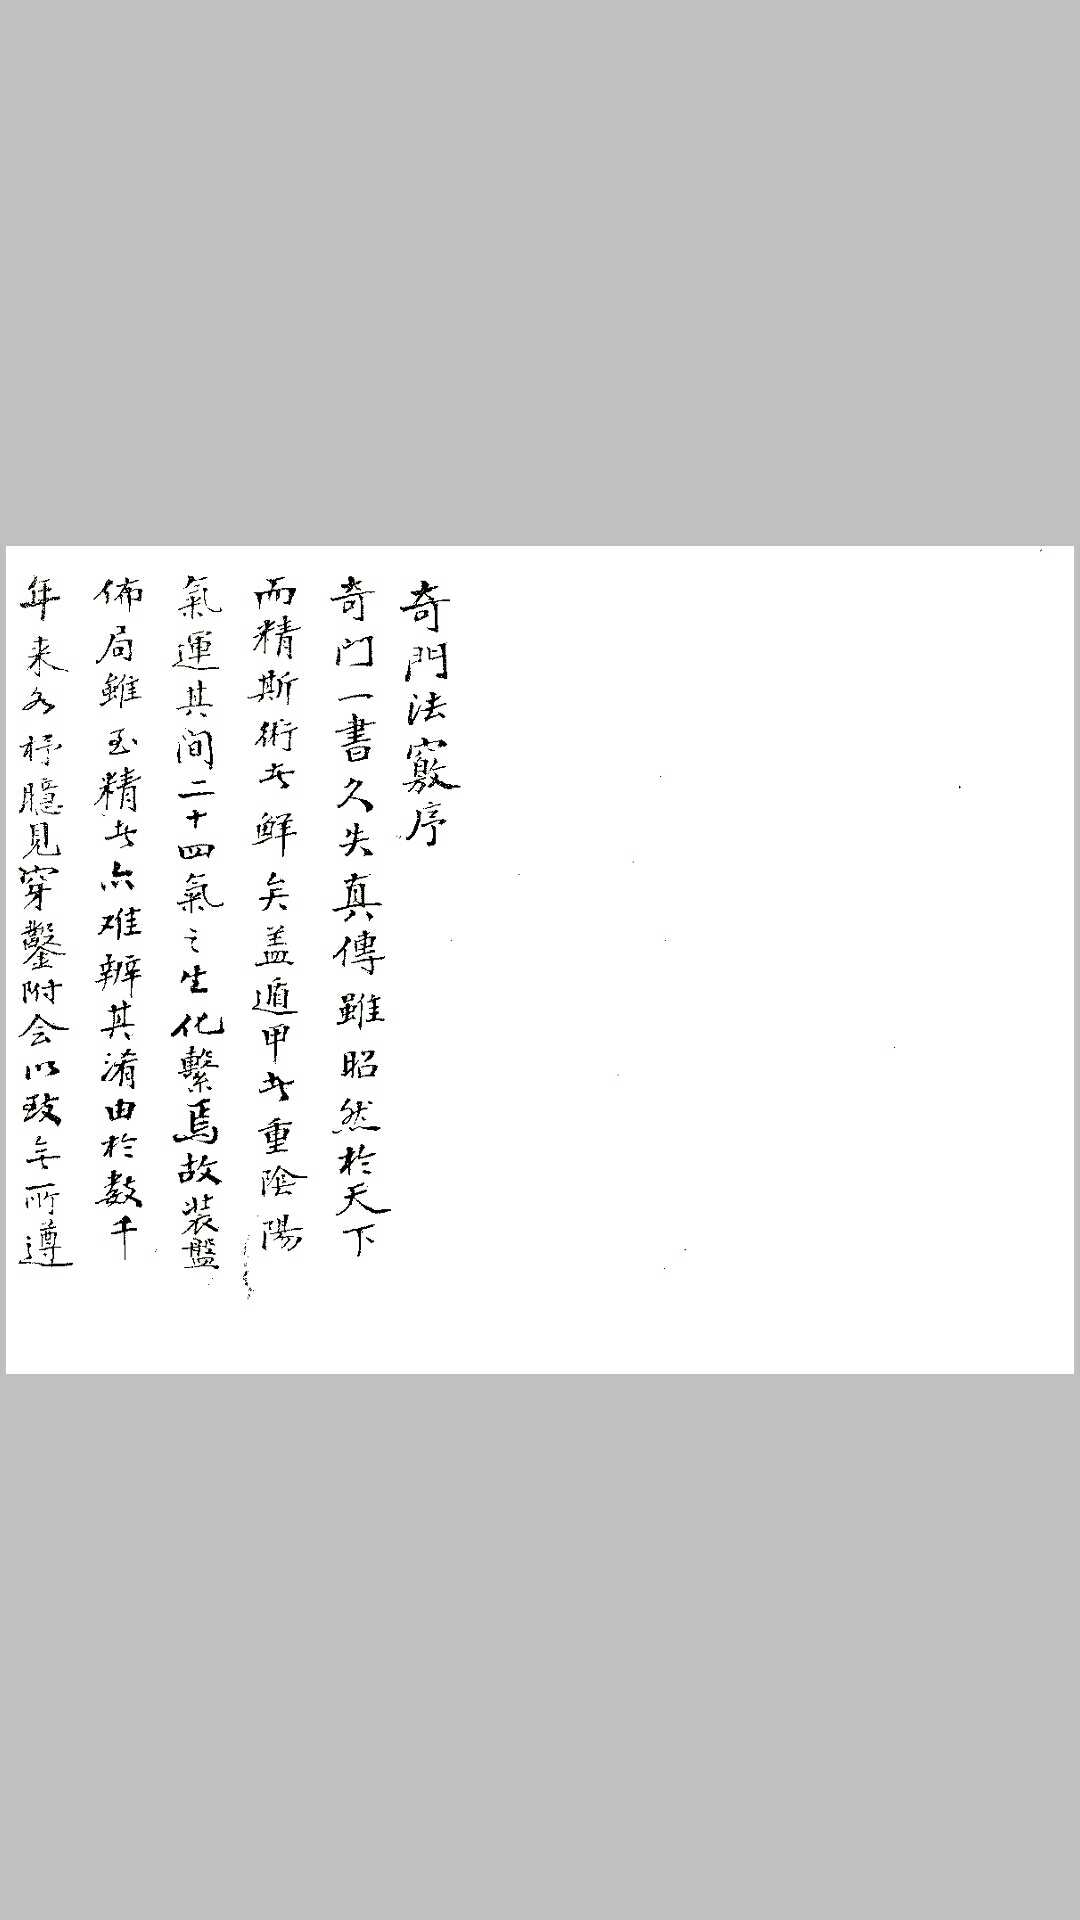 奇門法竅序
奇门一書久失真傳雖昭然於天下
而精斯術者鮮矣盖遁甲者重陰陽
氣運其間二十四氣之生化繫焉故装盤
佈局雖至精者亦难辨其淆由於数千
年来各抒臆見穿鑿附会以致無所遵